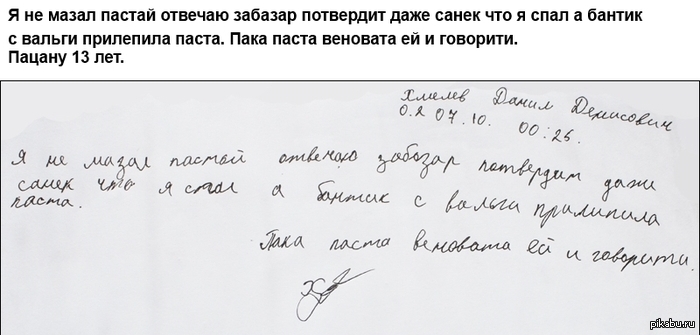 Я не мазал пастай отвечаю забазар потвердит даже санек что я спал а бантик
с вальги прилепила паста. Пака паста веновата ей и говорити.
Пацану 13 лет.
Хмелев Данил Денисович
0.2 07.10. 00:26.
Я не мазал пастай отвечаю забазар потвердит даже
санек что я спал а бантик с вальги прилипила
паста.
Пака паста веновата ей и говорити.
pikabu.ru